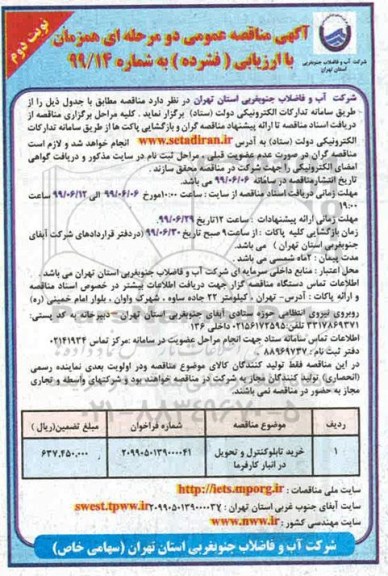 نوبت دوم
آگهی مناقصه عمومی دو مرحله ای همزمان
با ارزیابی ( فشرده ) به شماره ۹۹/۱۴
شرکت آب و فاضلاب جنوبغربی
استان تهران
شرکت آب و فاضلاب جنوبغربی استان تهران در نظر دارد مناقصه مطابق با جدول ذیل را از
طریق سامانه تدارکات الکترونیکی دولت (ستاد) برگزار نماید . کلیه مراحل برگزاری مناقصه از
دریافت اسناد مناقصه تا ارائه پیشنهاد مناقصه گران و بازگشایی پاکت ها از طریق سامانه تدارکات
الکترونیکی دولت (ستاد) به آدرس www.setadiran.ir انجام خواهد شد و لازم است
مناقصه گران در صورت عدم عضویت قبلی ، مراحل ثبت نام در سایت مذکور و دریافت گواهی
امضای الکترونیکی را جهت شرکت در مناقصه محقق سازند .
تاریخ انتشار مناقصه در سامانه ۹۹/۰۶/۰۶ می باشد.
مهلت زمانی دریافت اسناد مناقصه از سایت : ساعت ۱۰:۰۰ مورخ ۹۹/۰۶/۰۶ الی ۹۹/۰۶/۱۲ ساعت
۱۹:۰۰
مهلت زمانی ارائه پیشنهادات : ساعت ۱۲ تاریخ ۹۹/۰۶/۲۹
زمان بازگشایی کلیه پاکات : از ساعت ۹ صبح تاریخ ۹۹/۰۶/۳۰ (دردفتر قراردادهای شرکت آبفای
جنوبغربی استان تهران ) می باشد.
مدت پیمان : ۲ماه شمسی می باشد .
محل اعتبار : منابع داخلی سرمایه ای شرکت آب و فاضلاب جنوبغربی استان تهران می باشد .
اطلاعات تماس دستگاه مناقصه گزار جهت دریافت اطلاعات بیشتر در خصوص اسناد مناقصه
و ارائه پاکات : آدرس- تهران ، کیلومتر ۲۲ جاده ساوه ، شهرک واوان ، بلوار امام خمینی (ره)
روبروی نیروی انتظامی حوزه ستادی آبفای جنوبغربی استان تهران – دبیرخانه به کد پستی:
۳۳۱۷۸۶۹۳۷۱ تلفن:۰۲۱۵۶۱۷۲۵۹۵ داخلی ۱۳۶
اطلاعات تماس سامانه ستاد جهت انجام مراحل عضویت در سامانه :مرکز تماس ۰۲۱۴۱۹۳۴
دفتر ثبت نام : ۸۸۹۶۹۷۳۷
در این مناقصه فقط تولید کنندگان کالای موضوع مناقصه ودر اولویت بعدی نماینده رسمی
(انحصاری) تولید کنندگان مجاز به شرکت در مناقصه خواهند بود و شرکتهای واسطه و تجاری
مجاز به حضور در مناقصه نمی باشند.
ردیف موضوع مناقصه شماره فراخوان مبلغ تضمین(ریال )
۱ خرید تابلوکنترل و تحویل در انبار کارفرما ۲۰۹۹۰۵۰۱۳۹۰۰۰۰۴۱ ۶۳۷,۴۵۰,۰۰۰
سایت ملی مناقصات : http://iets.mporg.ir
سایت آبفای جنوب غربی استان تهران : ۲۰۹۹۰۵۰۱۳۹۰۰۰۰۳۷ swest.tpww.ir
سایت مهندسی کشور : www.nww.ir
شرکت آب و فاضلاب جنوبغربی استان تهران (سهامی خاص)